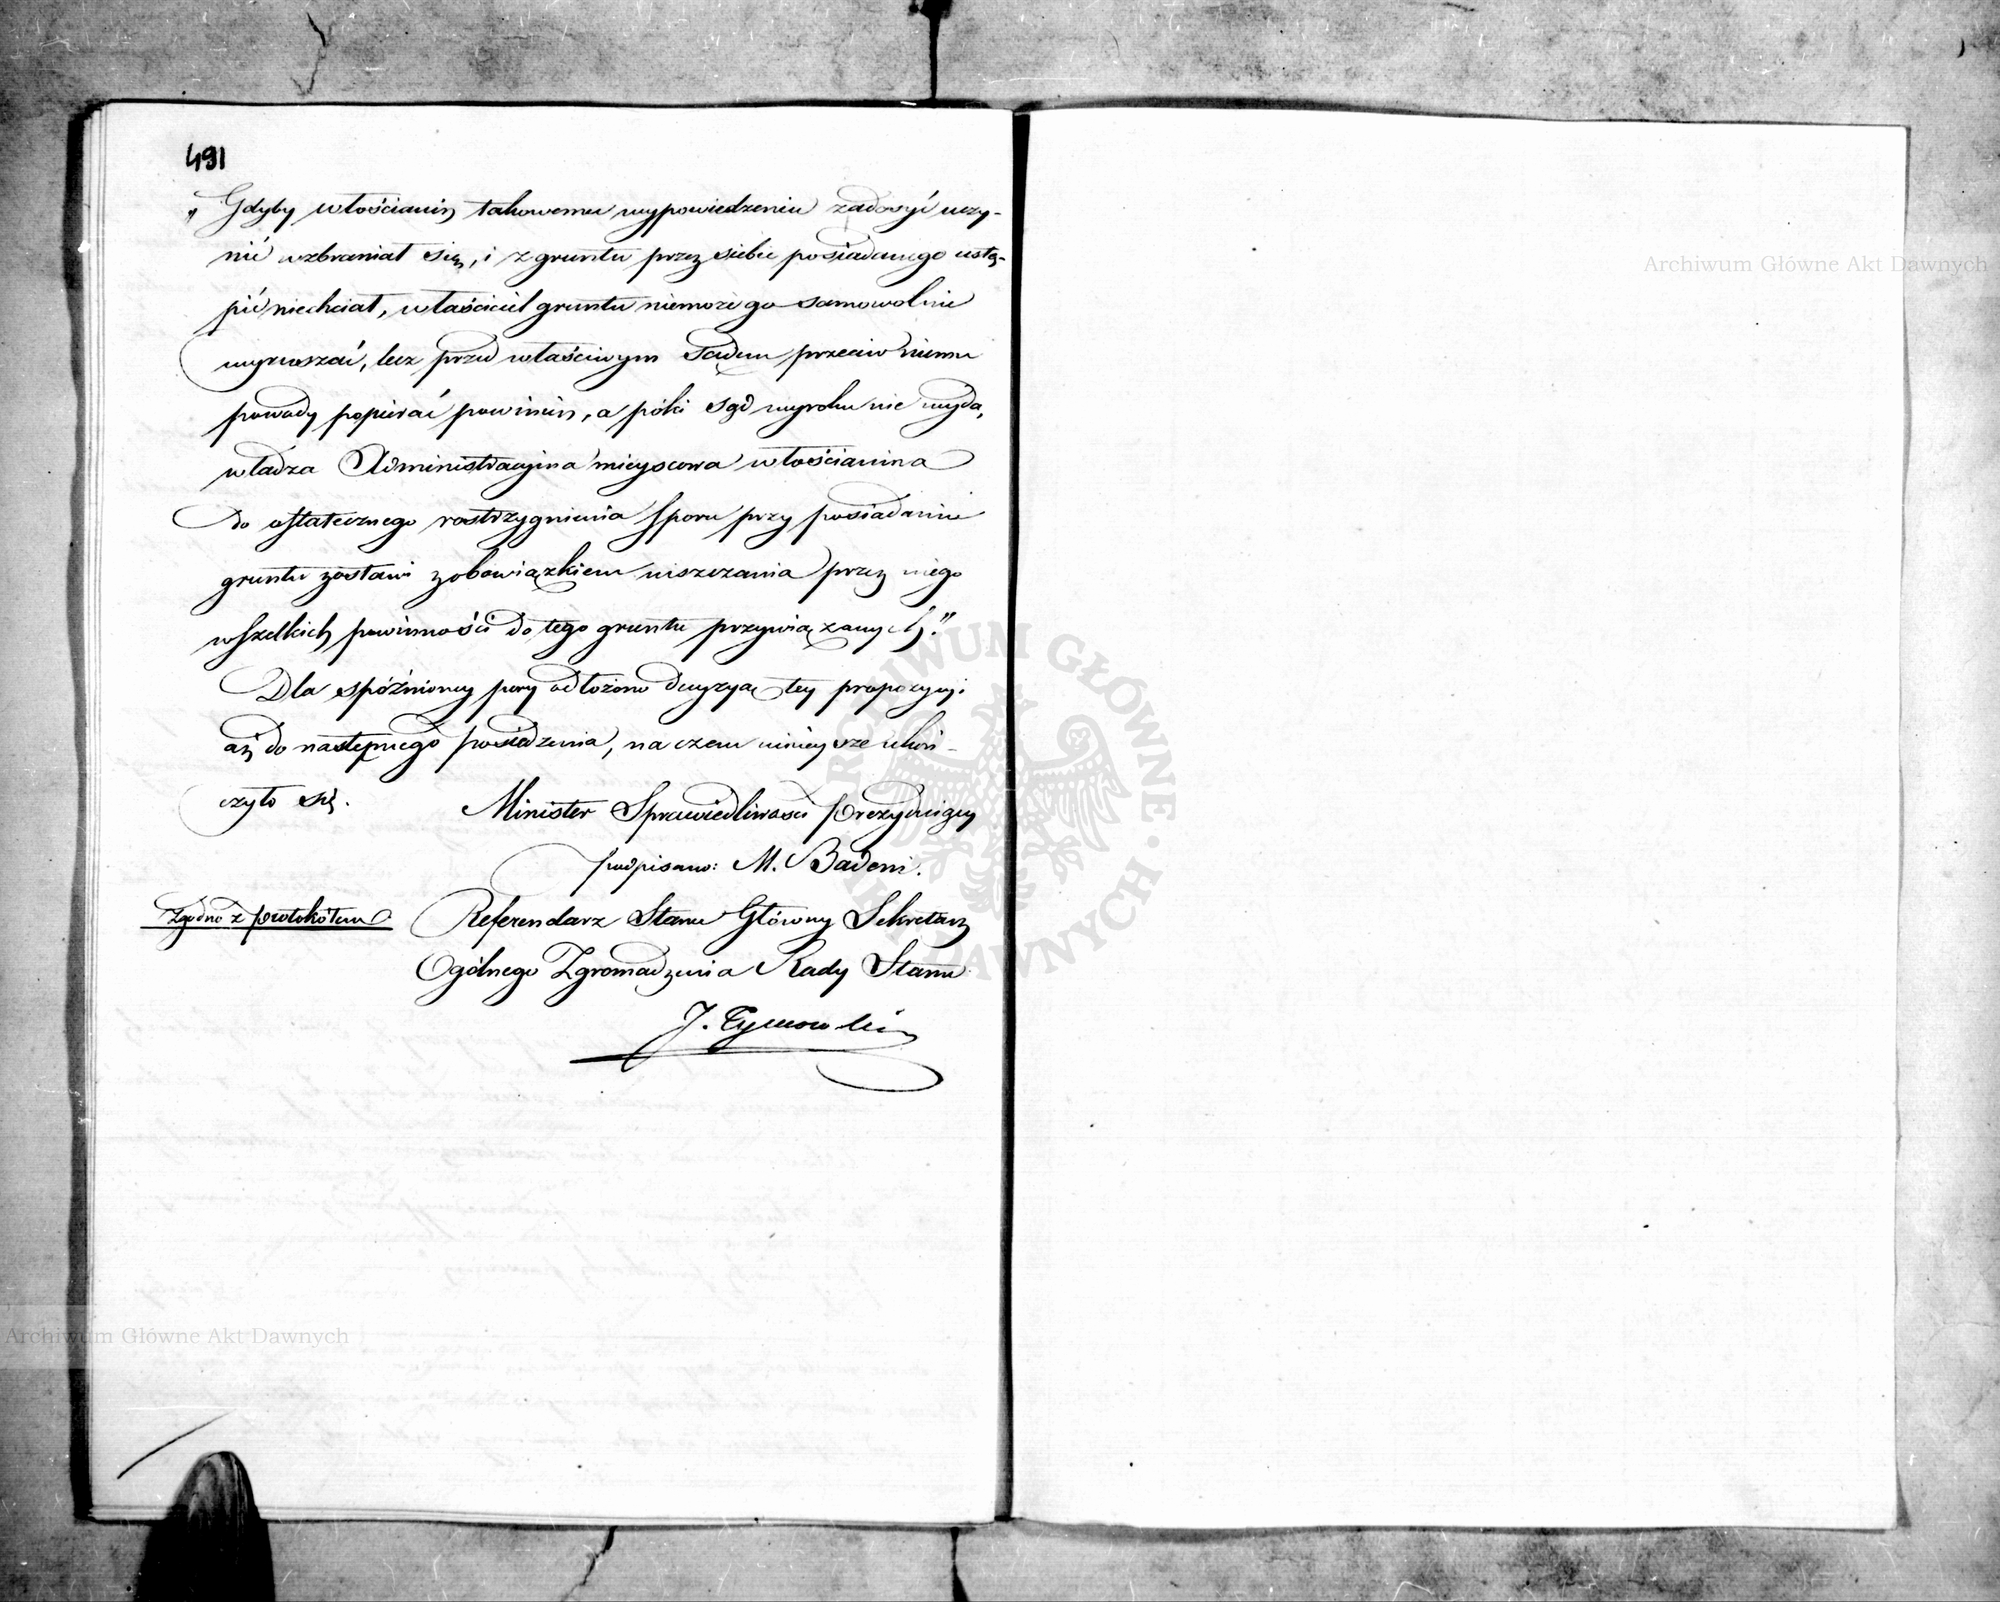 491
„Gdyby włościanin takowemu wypowiedzeniu zadosyć uczy-
nić wzbraniał się, i z gruntu przez siebie posiadanego ustą-
pić niechciał, właściciel gruntu niemoże go samowolnie
wyruszać, lecz przed właściwym Sądem przeciw niemu
powody popierać powinien, a póki Sąd wyroku nie wyda,
władza Administracyjna mieyscowa włościanina
do ostatecznego rostrzygnienia sporu przy posiadaniu
gruntu zostawi z obowiązkiem uiszczania przez niego
wszelkich powinności do tego gruntu przywiązanych."
Dla spóźnioney pory odłożono decyzyą tey propozycyi
aż do następnego posiedzenia, na czem ninieysze ukoń-
czyło się.
Minister Sprawiedliwości Prezyduiący
podpisano: M. Badeni.
Zgodno z protokołem
Referendarz Stanu Główny Sekretarz
Ogólnego Zgromadzenia Rady Stanu
J. Tymowski
Archiwum Główne Akt Dawnych
Archiwum Główne Akt Dawnych
ARCHIWUM GŁÓWNE AKT DAWNYCH